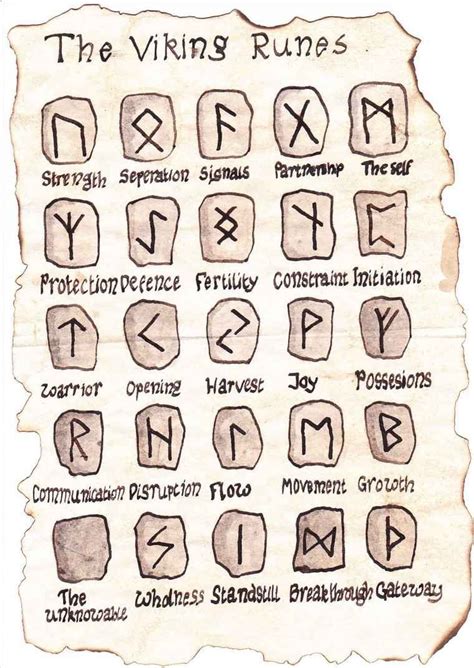 The Viking Runes
ᚢ ᛟ ᚨ ᚷ ᛗ
Strength Seperation Signals Partnership The self
ᛉ ᛇ ᛝ ᚾ ᛈ
Protection Defence Fertility Constraint Initiation
ᛏ ᚲ ᛃ ᚹ ᚠ
Warrior Opening Harvest Joy Possesions
ᚱ ᚺ ᛚ ᛖ ᛒ
Communication Disruption Flow Movement Growth
ᛊ ᛁ ᛞ ᚦ
The Unknowable Wholness Standstill Breakthrough Gateway